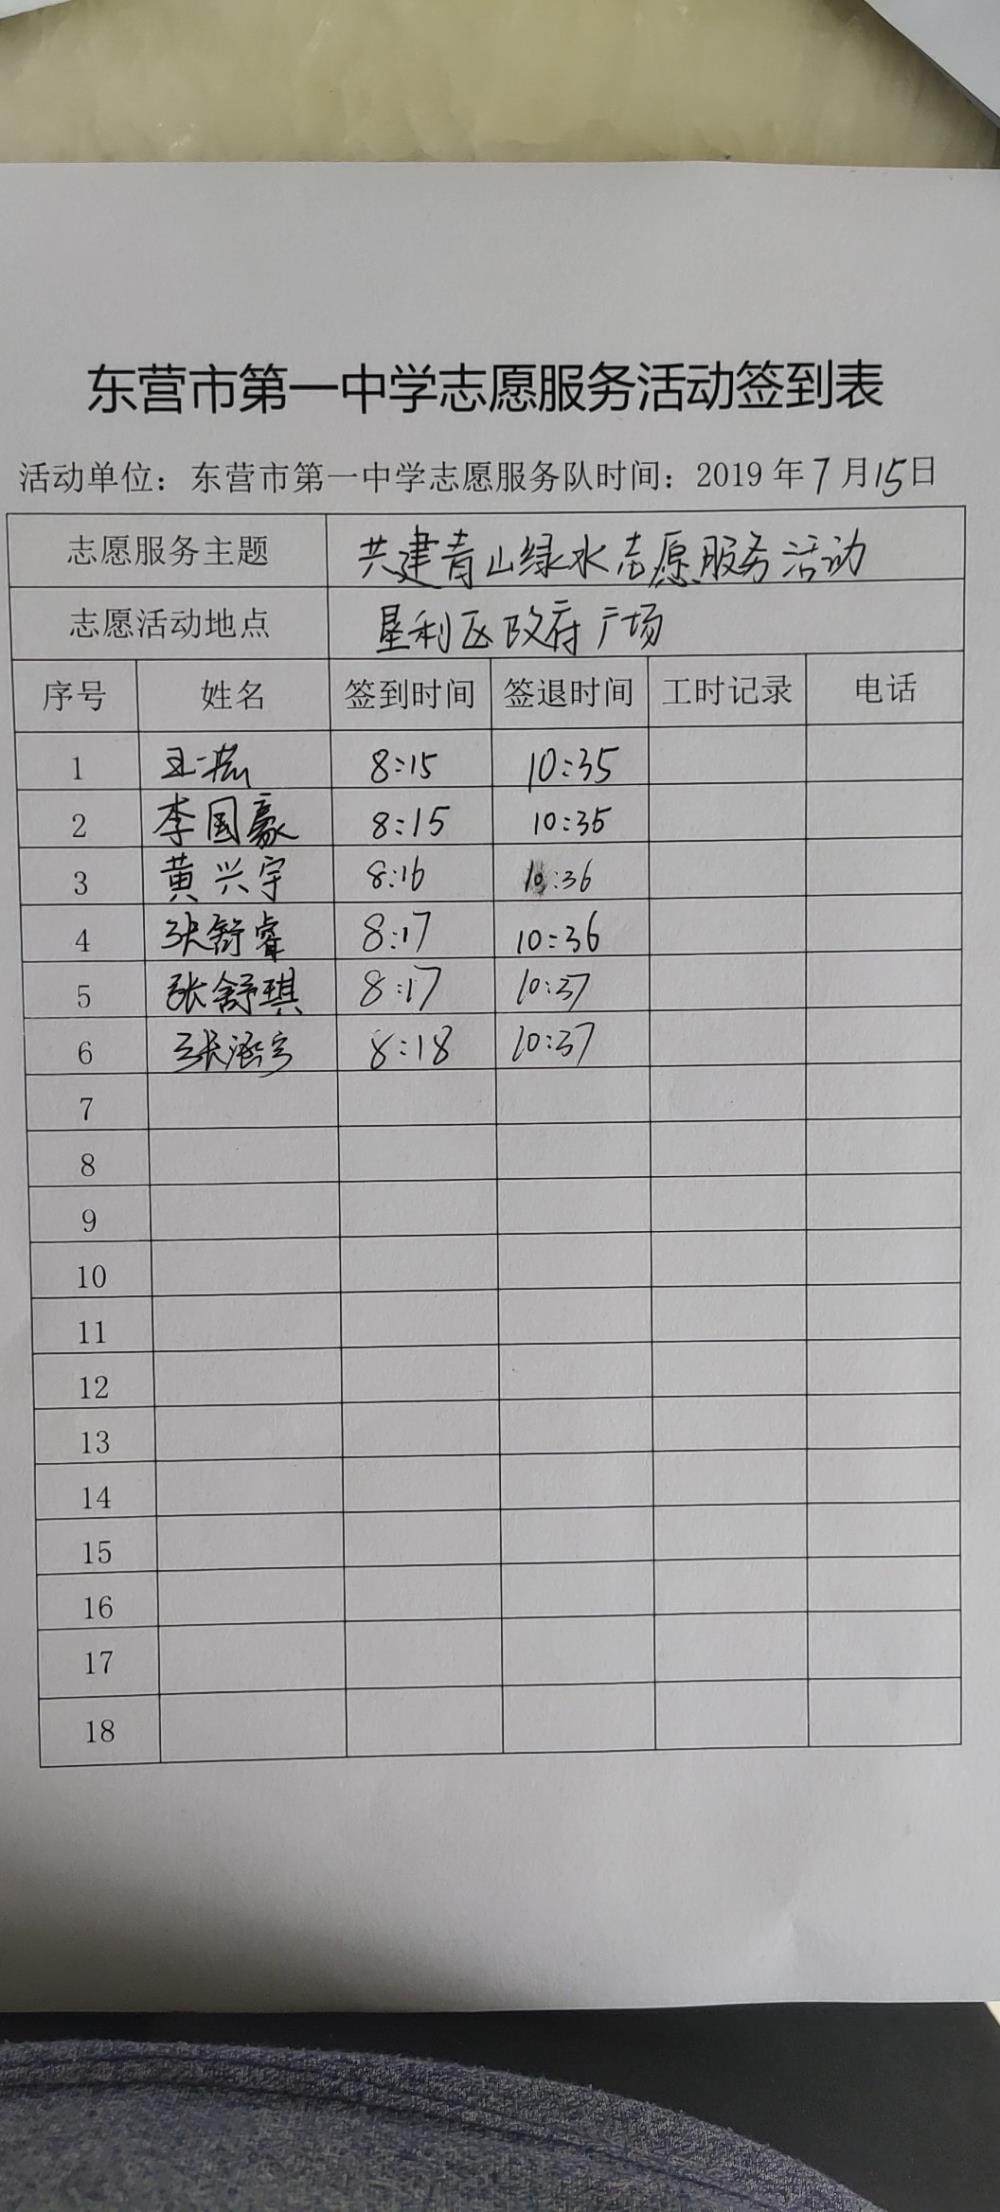 东营市第一中学志愿服务活动签到表
活动单位：东营市第一中学志愿服务队时间：2019年7月15日
志愿服务主题 共建青山绿水志愿服务活动
志愿活动地点 垦利区政府广场
序号 姓名 签到时间 签退时间 工时记录 电话
1 8:15 10:35
2 李国豪 8:15 10:35
3 黄兴宇 8:16 10:36
4 张舒睿 8:17 10:36
5 张舒琪 8:17 10:37
6 张涵宇 8:18 10:37
7
8
9
10
11
12
13
14
15
16
17
18